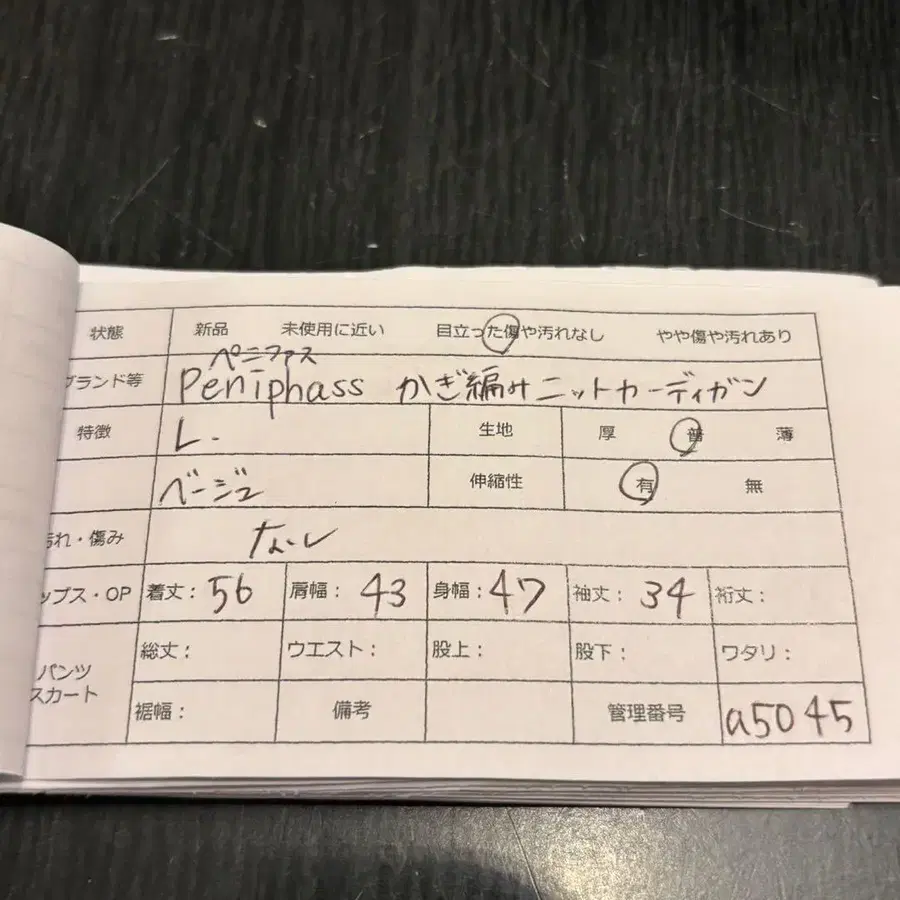 状態 新品 未使用に近い 目立った傷や汚れなし やや傷や汚れあり
ペニファス
ブランド等 Peniphass かぎ編みニットカーディガン
特徴 L. 生地 厚 普 薄
ベージュ 伸縮性 有 無
汚れ・傷み なし
ップス・OP 着丈: 56 肩幅: 43 身幅: 47 袖丈: 34 裄丈:
パンツ 総丈: ウエスト: 股上: 股下: ワタリ:
スカート
裾幅: 備考 管理番号 a5045